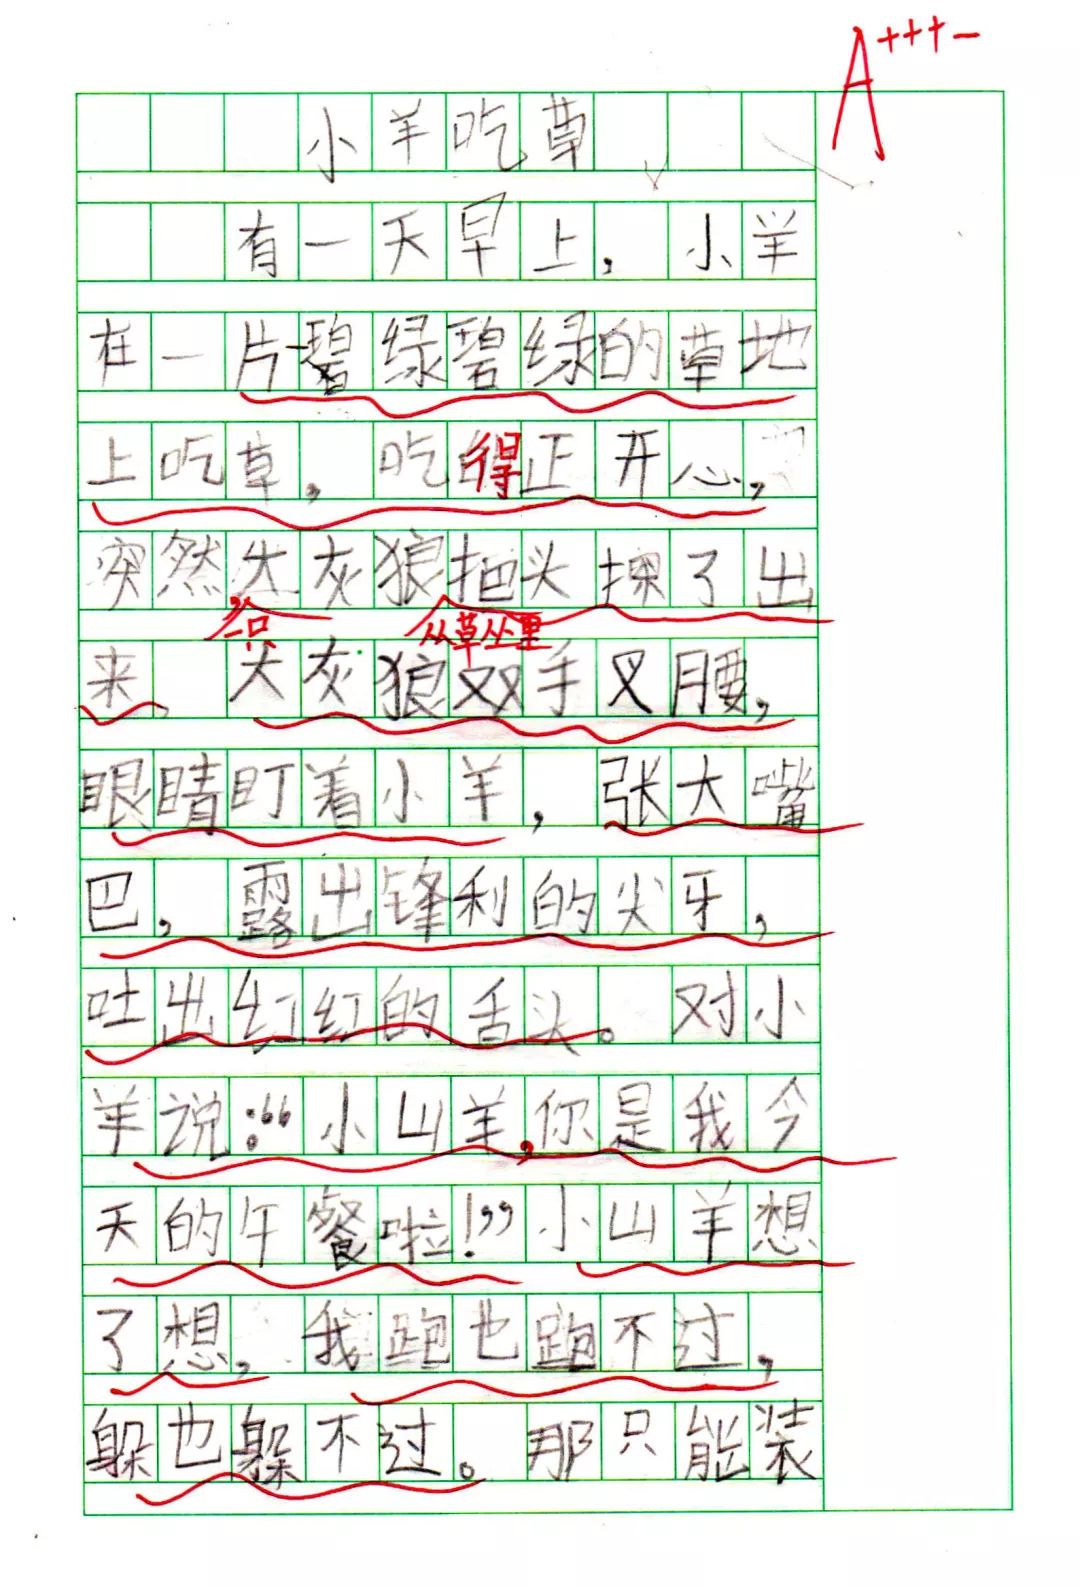 A+++-
小羊吃草
有一天早上，小羊
在一片碧绿碧绿的草地
上吃草，吃得正开心，
突然大灰狼把头探了出
一只 从草丛里
来，大灰狼双手叉腰，
眼睛盯着小羊，张大嘴
巴，露出锋利的尖牙，
吐出红红的舌头。对小
羊说：“小山羊，你是我今
天的午餐啦！”小山羊想
了想，我跑也跑不过，
躲也躲不过。那只能装